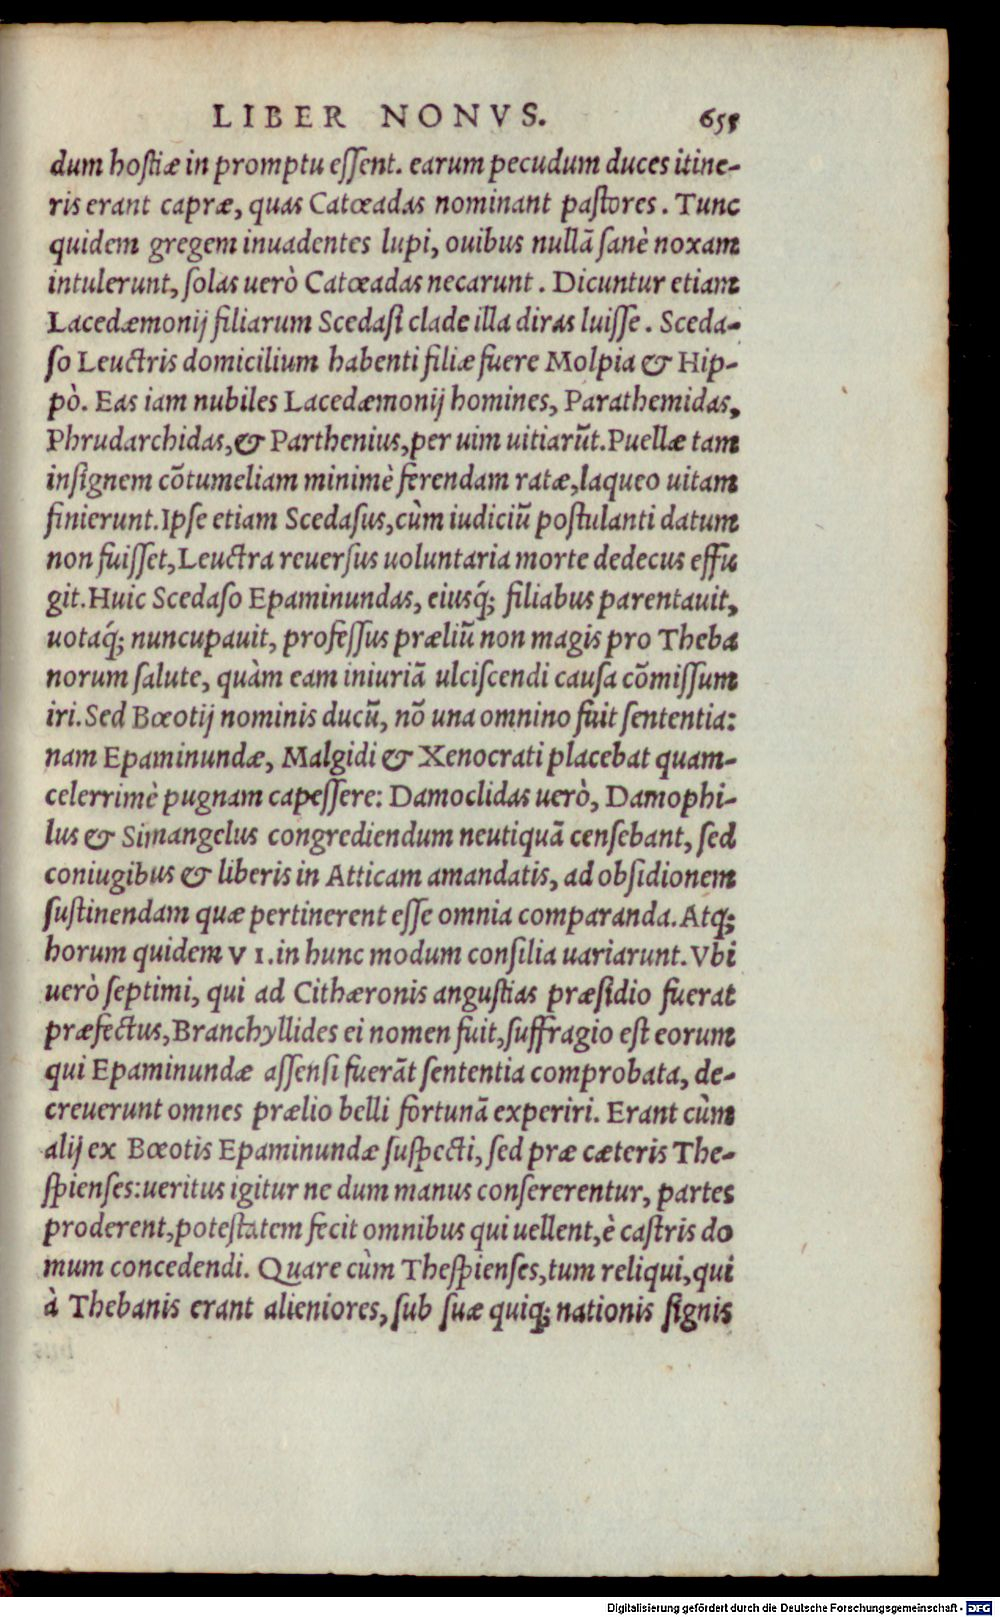 LIBER NONVS. 655
dum hostiæ in promptu essent. earum pecudum duces itine-
ris erant capræ, quas Catœadas nominant pastores. Tunc
quidem gregem inuadentes lupi, ouibus nullā sanè noxam
intulerunt, solas uerò Catœadas necarunt. Dicuntur etiam
Lacedæmonij filiarum Scedasi clade illa diras luisse. Sceda-
so Leuctris domicilium habenti filiæ fuere Molpia & Hip-
pò. Eas iam nubiles Lacedæmonij homines, Parathemidas,
Phrudarchidas, & Parthenius, per uim uitiarūt. Puellæ tam
insignem cōtumeliam minimè ferendam ratæ, laqueo uitam
finierunt. Ipse etiam Scedasus, cùm iudiciū postulanti datum
non fuisset, Leuctra reuersus uoluntaria morte dedecus effu
git. Huic Scedaso Epaminundas, eiusq́; filiabus parentauit,
uotaq́; nuncupauit, professus præliū non magis pro Theba
norum salute, quàm eam iniuriā ulciscendi causa cōmissum
iri. Sed Bœotij nominis ducū, nō una omnino fuit sententia:
nam Epaminundæ, Malgidi & Xenocrati placebat quam-
celerrimè pugnam capessere: Damoclidas uerò, Damophi-
lus & Simangelus congrediendum neutiquā censebant, sed
coniugibus & liberis in Atticam amandatis, ad obsidionem
sustinendam quæ pertinerent esse omnia comparanda. Atq;
horum quidem VI. in hunc modum consilia uariarunt. Vbi
uerò septimi, qui ad Cithæronis angustias præsidio fuerat
præfectus, Branchyllides ei nomen fuit, suffragio est eorum
qui Epaminundæ assensi fuerāt sententia comprobata, de-
creuerunt omnes prælio belli fortunā experiri. Erant cùm
alij ex Bœotis Epaminundæ suspecti, sed præ cæteris The-
spienses: ueritus igitur ne dum manus consererentur, partes
proderent, potestatem fecit omnibus qui uellent, è castris do
mum concedendi. Quare cùm Thespienses, tum reliqui, qui
à Thebanis erant alieniores, sub suæ quiq; nationis signis
Digitalisierung gefördert durch die Deutsche Forschungsgemeinschaft - DFG